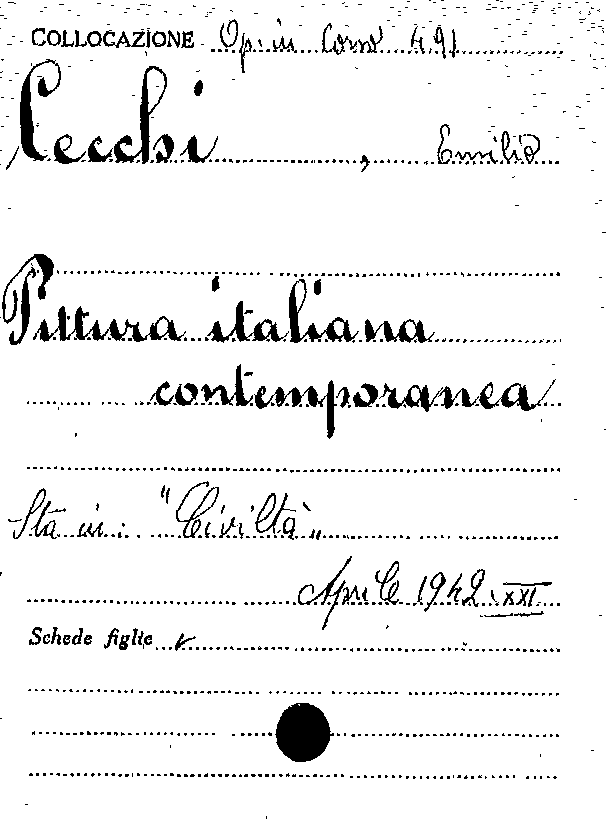 COLLOCAZIONE Op. in Corso 491
Cecchi, Emilio
Pittura italiana
contemporanea
Sta in: "Civiltà"
Aprile 1942. XXI
Schede figlie